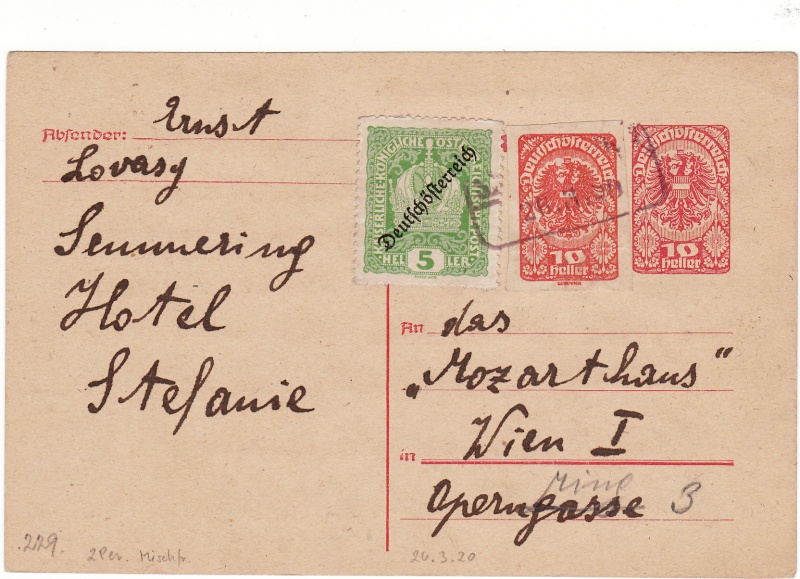 Absender: Ernst
Lovasy
Semmering
Hotel
Stefanie
KAISERLICHE KÖNIGLICHE ÖSTERREICHISCHE POST
Deutschösterreich
5
HELLER
Deutschösterreich
10
Heller
Deutschösterreich
10
Heller
An das
„Mozarthaus"
in Wien I
Operngasse
ring 3
229.
2 Per. Mischfr.
26.3.20